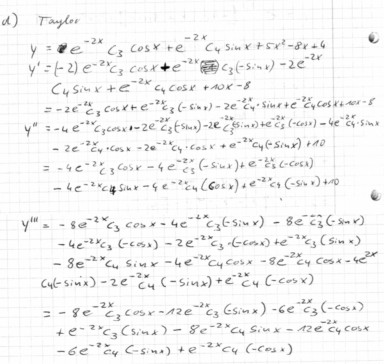 d) Taylor
y = e^{-2x} C₃ cosx + e^{-2x} C₄ sinx + 5x² - 8x + 4
y' = (-2) e^{-2x} C₃ cosx + e^{-2x} C₃(-sinx) - 2e^{-2x}
C₄ sinx + e^{-2x} C₄ cosx + 10x - 8
= -2e^{-2x} C₃ cosx + e^{-2x} C₃(-sinx) - 2e^{-2x} C₄ · sinx + e^{-2x} C₄ cosx + 10x - 8
y'' = -4e^{-2x} C₃ cosx · -2e^{-2x} C₃(-sinx) - 2e^{-2x} C₃(-sinx) + e^{-2x} C₃(-cosx) - 4e^{-2x} C₄ · sinx
- 2e^{-2x} C₄ · cosx - 2e^{-2x} C₄ · cosx + e^{-2x} C₄(-sinx) + 10
= -4e^{-2x} C₃ cosx - 4e^{-2x} C₃(-sinx) + e^{-2x} C₃(-cosx)
- 4e^{-2x} C₄ sinx - 4e^{-2x} C₄(cosx) + e^{-2x} C₄(-sinx) + 10
y''' = -8e^{-2x} C₃ cosx - 4e^{-2x} C₃(-sinx) - 8e^{-2x} C₃(-sinx)
- 4e^{-2x} C₃(-cosx) - 2e^{-2x} C₃ · (-cosx) + e^{-2x} C₃(sinx)
- 8e^{-2x} C₄ sinx - 4e^{-2x} C₄ cosx - 8e^{-2x} C₄ cosx - 4e^{2x}
C₄(-sinx) - 2e^{-2x} C₄(-sinx) + e^{-2x} C₄(-cosx)
= -8e^{-2x} C₃ cosx - 12e^{-2x} C₃(-sinx) - 6e^{-2x} C₃(-cosx)
+ e^{-2x} C₃(sinx) - 8e^{-2x} C₄ sinx - 12e^{-2x} C₄ cosx
- 6e^{-2x} C₄(-sinx) + e^{-2x} C₄(-cosx)